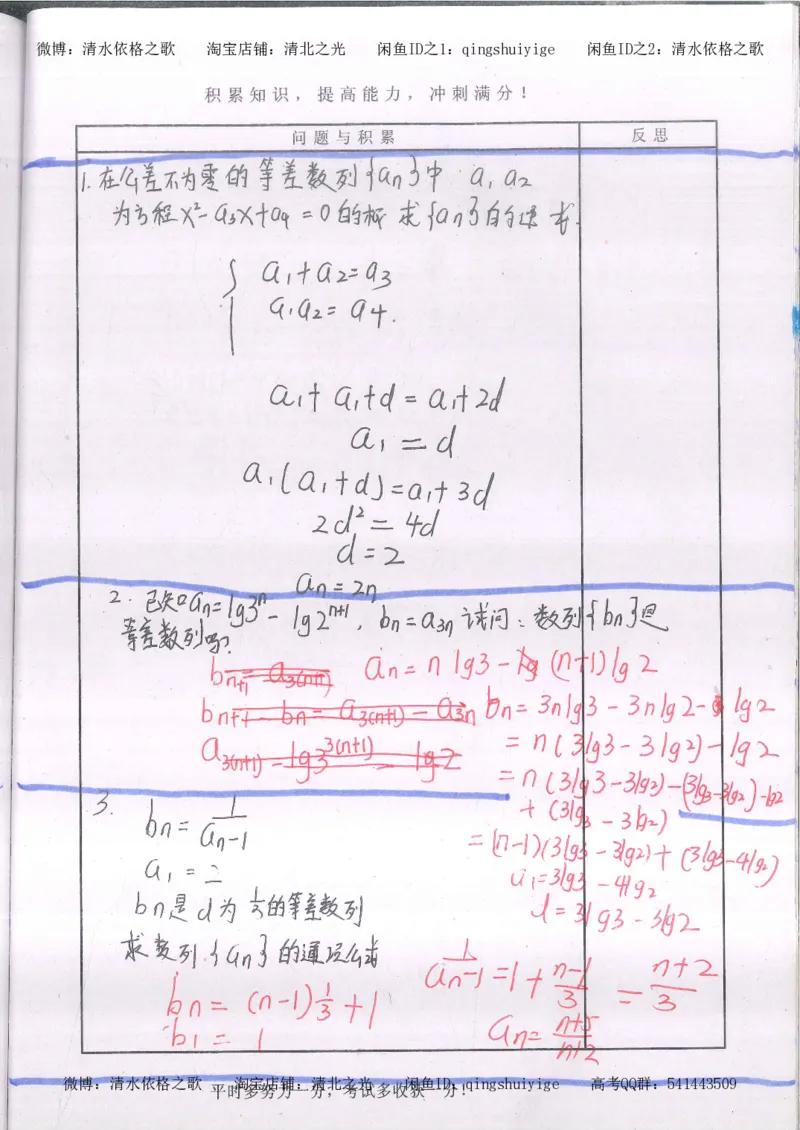 微博：清水依格之歌 淘宝店铺：清北之光 闲鱼ID之1：qingshuiyige 闲鱼ID之2：清水依格之歌
积累知识，提高能力，冲刺满分！
问题与积累 反思
1. 在公差不为零的等差数列{an}中 a₁ a₂
为方程 x²-a₃x+a₄=0的根 求{an}的通 式.
a₁+a₂=a₃
a₁a₂=a₄.
a₁+a₁+d=a₁+2d
a₁=d
a₁(a₁+d)=a₁+3d
2d²=4d
d=2
an=2n
2. 已知an=lg3ⁿ-lg2ⁿ⁺¹, bn=a₃n 试问：数列{bn}是
等差数列吗?
bn+1=a3(n+1) an=nlg3-(n+1)lg2
bn+1-bn=a3(n+1)-a3n bn=3nlg3-3nlg2-lg2
a3(n+1)=lg3^3(n+1)-lg2 =n(3lg3-3lg2)-lg2
=n(3lg3-3lg2)-(3lg3-3lg2)-lg2
+(3lg3-3lg2)
=(n-1)(3lg3-3lg2)+(3lg3-4lg2)
a₁=3lg3-4lg2
d=3lg3-3lg2
3.
bn=1/(an-1)
a₁=2
bn是d为1/3的等差数列
求数列{an}的通项公式
bn=(n-1)1/3+1
b₁=1
1/(an-1)=1+(n-1)/3=(n+2)/3
an=(n+5)/(n+2)
微博：清水依格之歌 淘宝店铺：清北之光 闲鱼ID：qingshuiyige 高考QQ群：541443509
平时多努力一分，考试多收获一分！